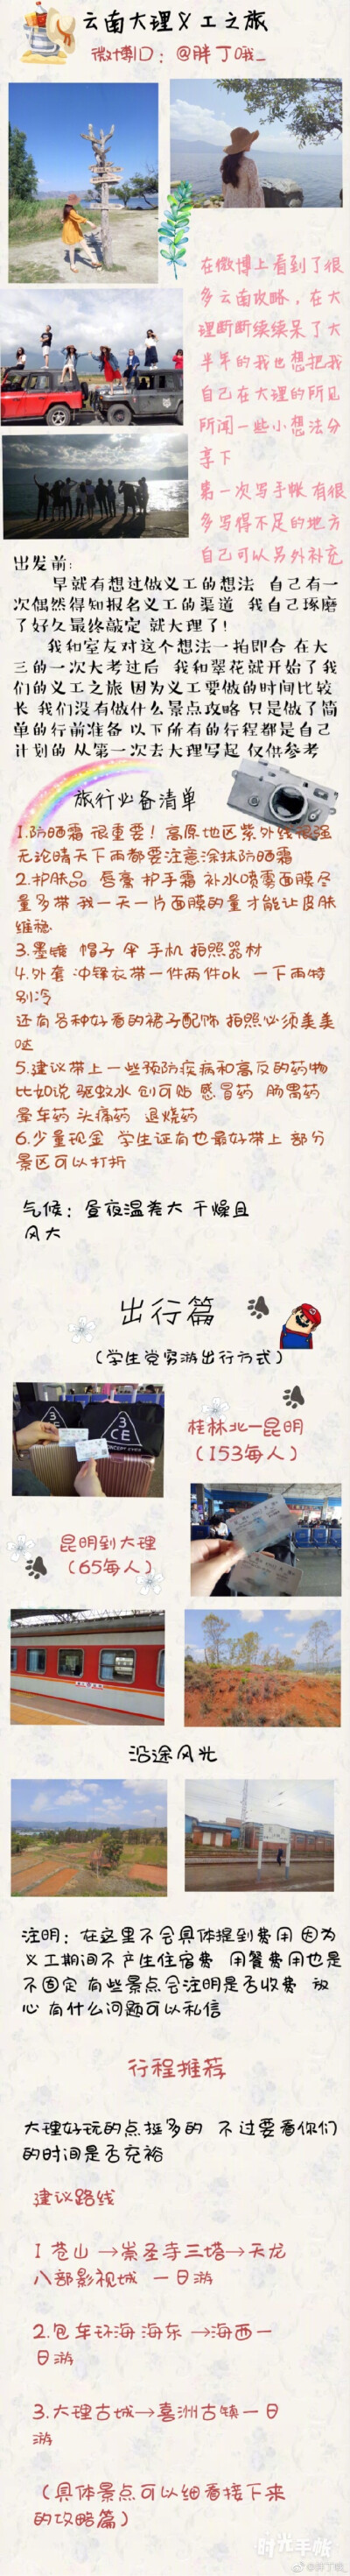 云南大理义工之旅
微博ID：@胖丁哦_
在微博上看到了很
多云南攻略，在大
理断断续续呆了大
半年的我也想把我
自己在大理的所见
所闻一些小想法分
享下
第一次写手帐 有很
多写得不足的地方
自己可以另外补充
出发前：
早就有想过做义工的想法 自己有一
次偶然得知报名义工的渠道 我自己琢磨
了好久最终敲定 就大理了！
我和室友对这个想法一拍即合 在大
三的一次大考过后 我和翠花就开始了我
们的义工之旅 因为义工要做的时间比较
长 我们没有做什么景点攻略 只是做了简
单的行前准备 以下所有的行程都是自己
计划的 从第一次去大理写起 仅供参考
旅行必备清单
1.防晒霜 很重要！高原地区紫外线很强
无论晴天下雨都要注意涂抹防晒霜
2.护肤品 唇膏 护手霜 补水喷雾面膜尽
量多带 我一天一片面膜的量才能让皮肤
维稳
3.墨镜 帽子 伞 手机 拍照器材
4.外套 冲锋衣带一件两件ok 一下雨特
别冷
还有各种好看的裙子配饰 拍照必须美美
哒
5.建议带上一些预防疾病和高反的药物
比如说 驱蚊水 创可贴 感冒药 肠胃药
晕车药 头痛药 退烧药
6.少量现金 学生证有也最好带上 部分
景区可以打折
气候：昼夜温差大 干燥且
风大
出行篇
（学生党穷游出行方式）
3
CE
桂林北—昆明
（153每人）
昆明到大理
（65每人）
沿途风光
注明：在这里不会具体提到费用 因为
义工期间不产生住宿费 用餐费用也是
不固定 有些景点会注明是否收费 放
心 有什么问题可以私信
行程推荐
大理好玩的点挺多的 不过要看你们
的时间是否充裕
建议路线
1 苍山→崇圣寺三塔→天龙
八部影视城 一日游
2.包车环海 海东→海西一
日游
3.大理古城→喜洲古镇一日
游
（具体景点可以细看接下来
的攻略篇）
时光手帐
@胖丁哦_